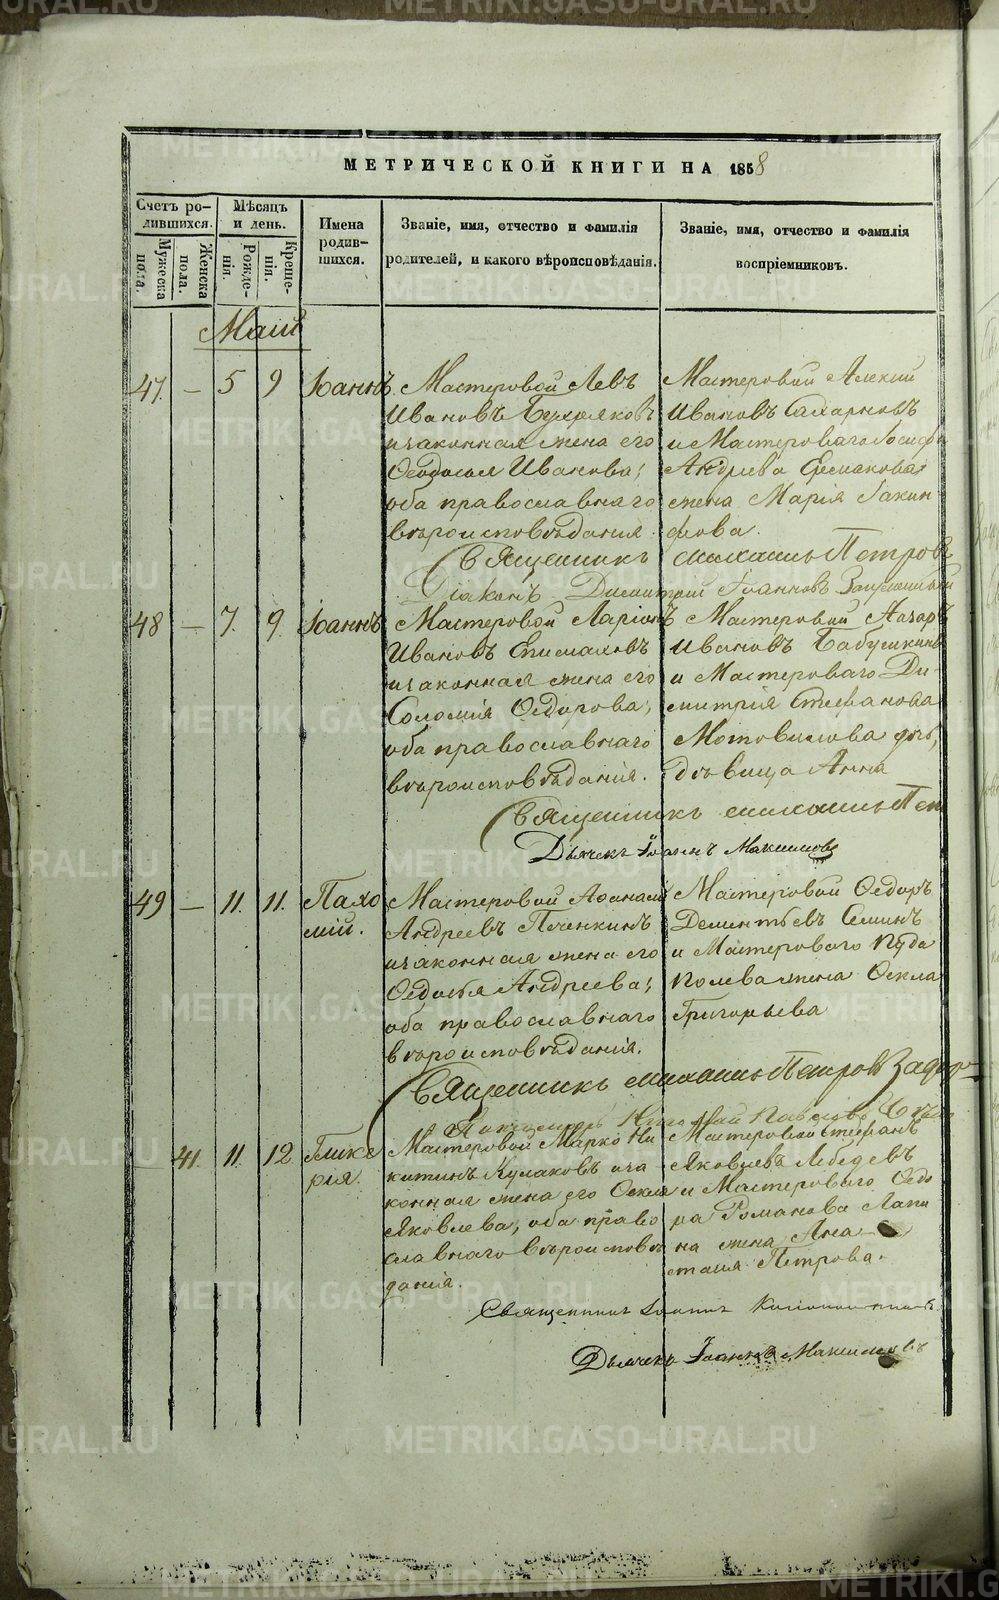 МЕТРИЧЕСКОЙ КНИГИ НА 1858
Счетъ ро-
дившихся.
Мѣсяцъ
и день.
Имена
родив-
шихся.
Званіе, имя, отчество и фамилія
родителей, и какого вѣроисповѣданія.
Званіе, имя, отчество и фамилія
воспріемниковъ.
Мужеска
пола.
Женска
пола.
Рожде-
нія.
Креще-
нія.
Маій
47. — 5 9 Іоаннъ. Мастеровой Левъ
Ивановъ
и законная жена его
Ѳеодосья Иванова;
оба православнаго
вѣроисповѣданія.
Мастеровый Алексій
Ивановъ Сахарновъ
и Мастероваго Іосифа
Андреева Ермакова
жена Марія Іакин-
фова.
Священникъ Михаилъ Петровъ
Діаконъ Димитрій Іоанновъ
48 — 7. 9. Іоаннъ Мастеровой Ларіонъ
Ивановъ Епимаховъ
и законная жена его
Соломія Ѳедорова;
оба православнаго
вѣроисповѣданія.
Мастеровый Лазарь
Ивановъ Бабушкинъ
и Мастероваго Ди-
митрія Стефанова
Мотовилова дчь,
дѣвица Анна
Священникъ Михаилъ Пет
Дьячекъ Іоаннъ Максимовъ
49 — 11. 11. Пахо
мій.
Мастеровой Аѳанасій
Андреевъ Печенкинъ
и законная жена его
Ѳедосья Андреева;
оба православнаго
вѣроисповѣданія.
Мастеровой Ѳедоръ
Дементьевъ Семинъ
и Мастероваго
Полева жена Ѳекла
Григорьева
Священникъ Михаилъ Петровъ
Николай Павловъ
— 41. 11. 12. Глике
рія.
Мастеровой Марко Ни
китинъ Кулаковъ и за
конная жена его Ѳекла
Яковлева, оба право
славнаго вѣроисповѣ
данія.
Мастеровой Стефанъ
Яковлевъ Лебедевъ
и Мастероваго Ѳедо
ра Романова Лапи
на жена Ана
стасія Петрова.
Священникъ Іоаннъ
Дьячекъ Іоаннъ Максимовъ
METRIKI.GASO-URAL.RU